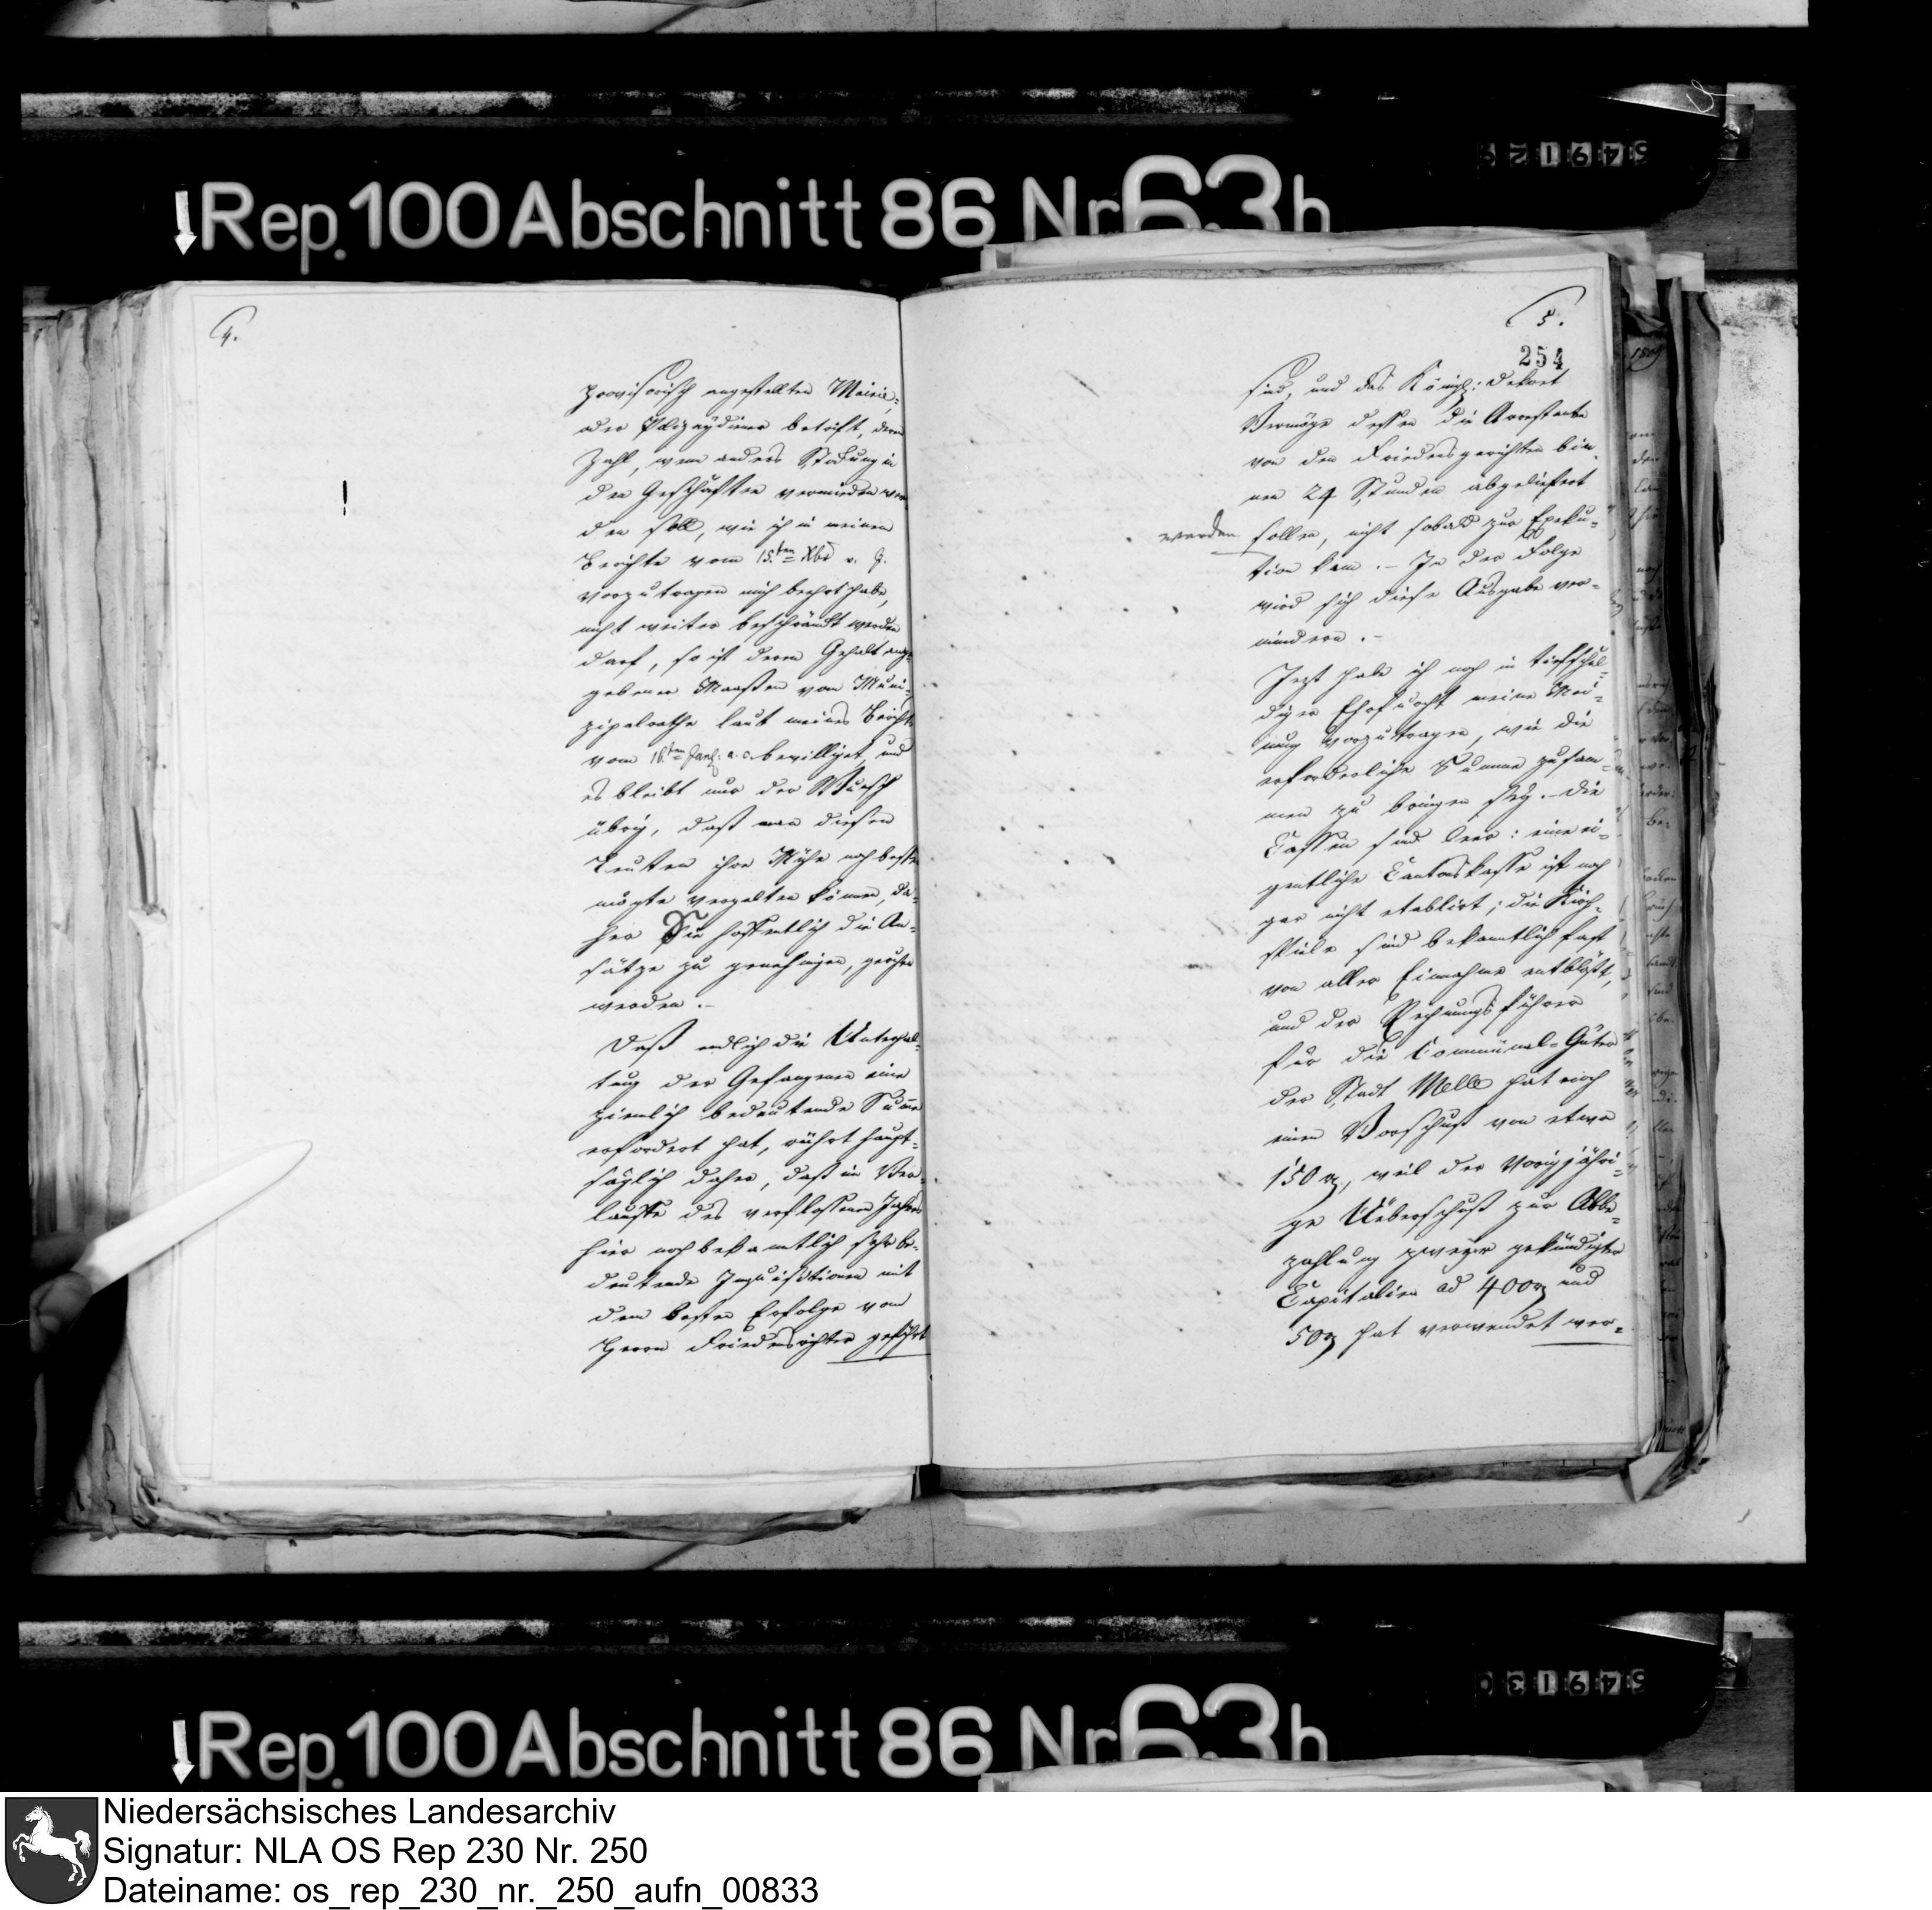 549129
Rep. 100 Abschnitt 86 Nr 63 b
4.
provisorisch angestellten Mairie-
oder Polizeydiener betrift, deren
Zahl, wenn anders Stockung in
den Geschäften vermieden wer-
den soll, wie ich in meinem
Berichte vom 15.ten Xbr v. J.
vorzutragen mich beehrt habe,
nicht weiter beschränkt werden
darf, so ist deren Gehalt ange-
gebener Maaßen vom Muni-
zipalrathe laut meines Berichts
vom 16.ten Jan: a. c. bewilliget, und
es bleibt nur der Wunsch
übrig, daß man diesen
Leuten ihre Mühe noch besser
mögte vergelten können, da-
her Sie hoffentlich die An-
sätze zu genehmigen, geruhen
werden.-
Daß endlich die Unterhal-
tung der Gefangenen eine
ziemlich bedeutende Summe
erfordert hat, rührt haupt-
säglich daher, daß im Ver-
laufe des verflossenen Jahres
hier noch bekantlich sehr be-
deutende Inquisitionen mit
dem besten Erfolge vom
Herrn Friedensrichter geführt
5.
254
sind, und das Königl: Dekret
Vermöge dessen die Arrestanten
von den Friedensgerichten bin-
nen 24 Stunden abgeliefert
werden sollen, nicht sobald zur Exeku-
tion kam.- In der Folge
wird sich diese Ausgabe ver-
mindern.-
Jezt habe ich noch in tiefschul-
diger Ehrfurcht meine Mei-
nung vorzutragen, wie die
erforderliche Summe zusam-
men zu bringen sey.- Die
Cassen sind leer: eine ei-
gentliche Cantonskasse ist noch
gar nicht etablirt; die Kirch-
spiele sind bekantlich fast
von aller Einnahme entblößt,
und der Rechnungsführer
für die Communal-Güter
der Stadt Melle hat noch
einen Vorschuß von etwa
150 rt, weil der Vorigjähri-
ge Ueberschuß zur Abbe-
zahlung zweyer gekündigter
Capitalien ad 400 rt und
50 rt hat verwendet wer-
549130
Rep. 100 Abschnitt 86 Nr 63 b
Niedersächsisches Landesarchiv
Signatur: NLA OS Rep 230 Nr. 250
Dateiname: os_rep_230_nr._250_aufn_00833